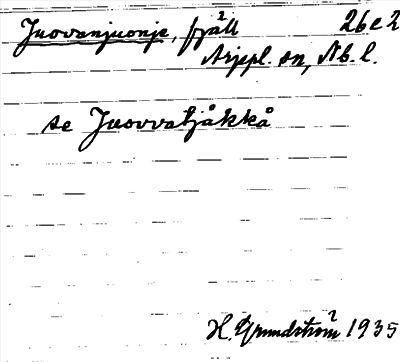 Juovanjuonje, fjäll 26c2
Arjepl. sn, Nb. l.
se Juovvatjåkkå
H. Grundström 1935